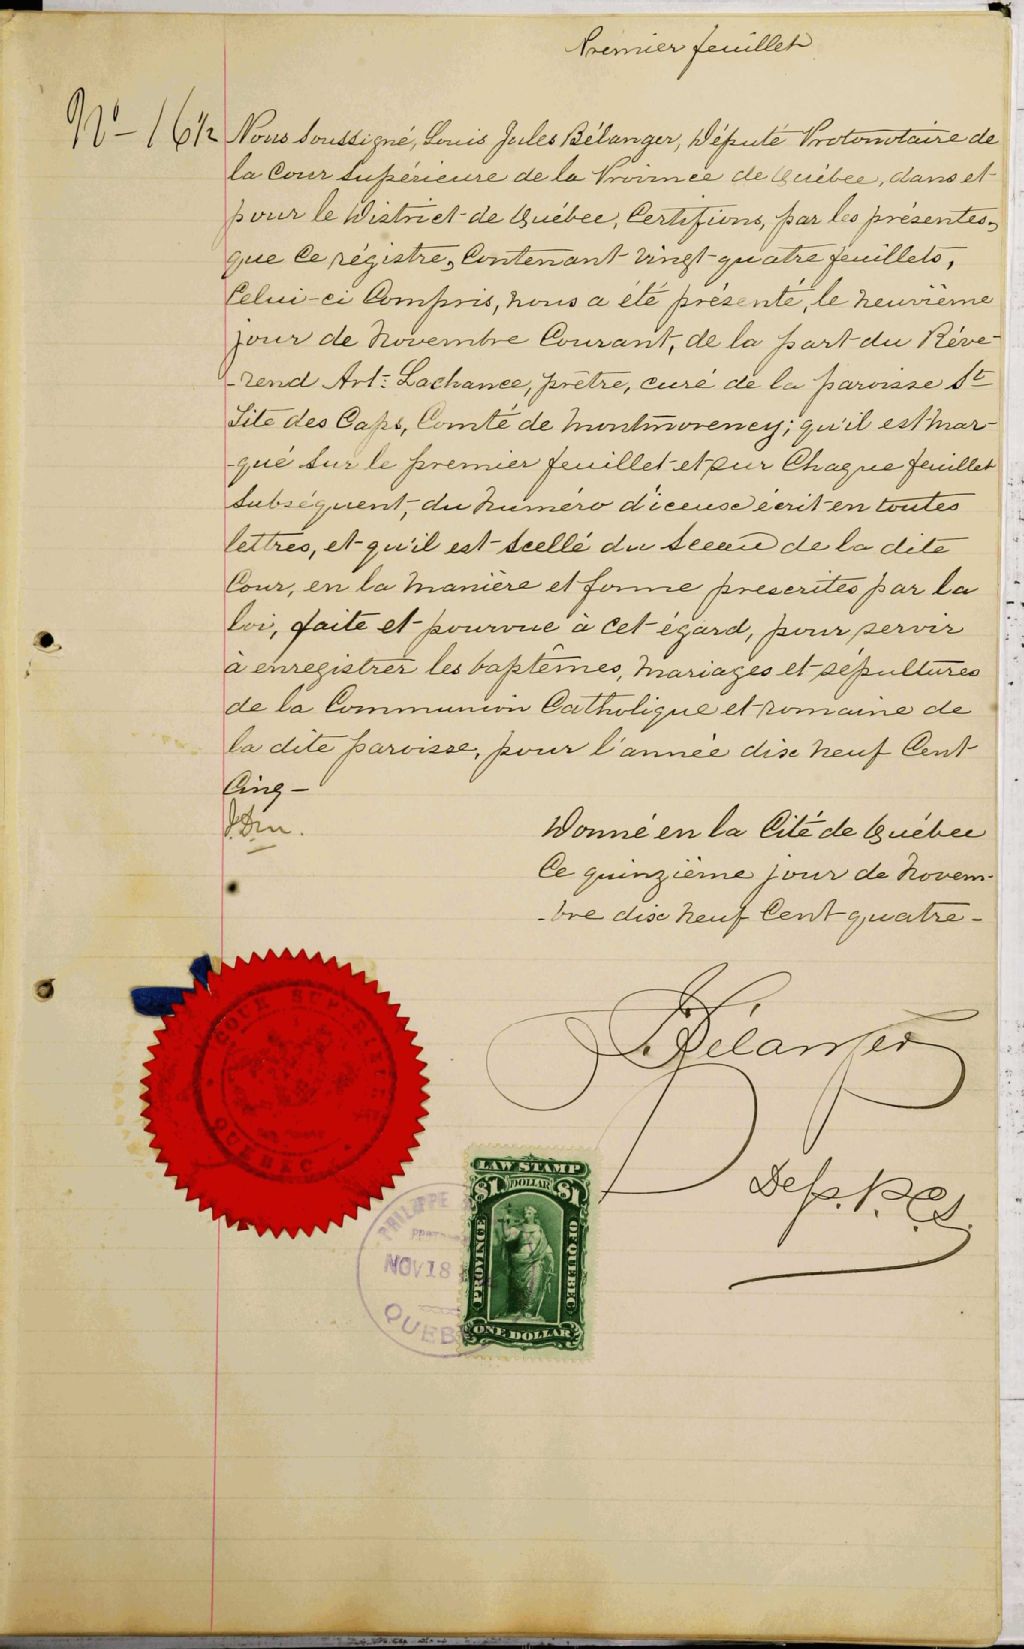 Premier feuillet
No - 16 1/2
Nous soussigné, Louis Jules Bélanger, Député Protonotaire de
la Cour Supérieure de la Province de Québec, dans et
pour le District de Québec, Certifions, par les présentes,
que ce régistre, contenant vingt-quatre feuillets,
Celui-ci Compris, nous a été présenté, le neuvième
jour de Novembre Courant, de la part du Réve-
-rend Art: Lachance, prêtre, curé de la paroisse St
Tite des Caps, Comté de Montmorency; qu'il est mar-
-qué sur le premier feuillet et sur Chaque feuillet
subséquent, du numéro d'iceux écrit en toutes
lettres, et qu'il est scellé du sceau de la dite
Cour, en la manière et forme prescrites par la
loi, faite et pourvue à cet égard, pour servir
à enregistrer les baptêmes, mariages et sépultures
de la Communion Catholique et romaine de
la dite paroisse, pour l'année dix neuf Cent
Cinq -
Donné en la Cité de Québec
Ce quinzième jour de Novem-
-bre dix neuf Cent quatre -
J. Bélanger
Dep. P. C. S.
COUR SUPERIEURE
QUEBEC
LAW STAMP
$1 DOLLAR $1
PROVINCE OF QUEBEC
ONE DOLLAR
PHILIPPE
NOV 18
QUEB